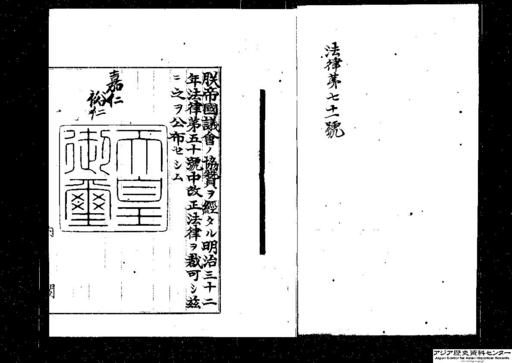 法律第七十一號
朕帝國議會ノ協賛ヲ經タル明治三十二
年法律第五十號中改正法律ヲ裁可シ茲
ニ之ヲ公布セシム
嘉仁
裕仁
天皇
御璽
アジア歴史資料センター
Japan Center for Asian Historical Records